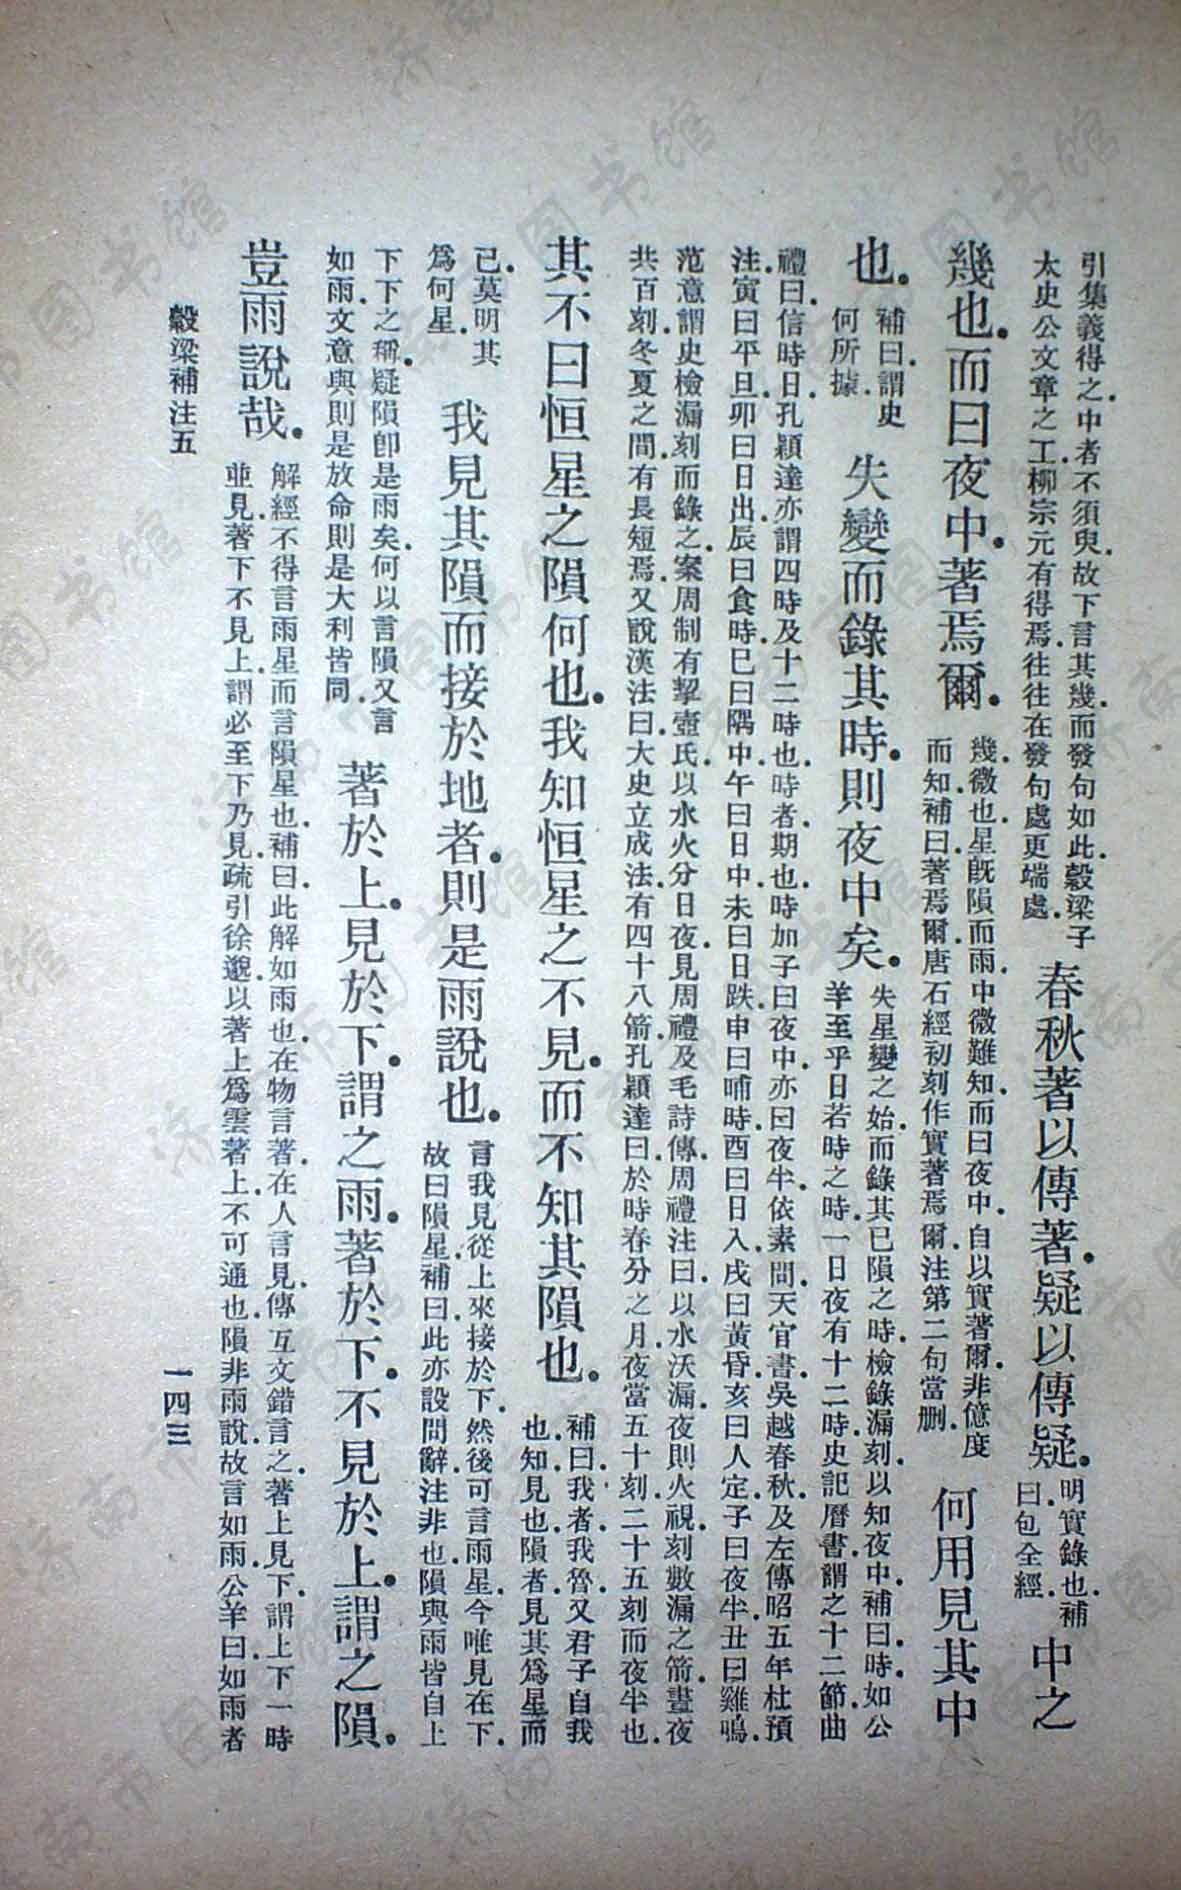 引集義得之。中者不須臾。故下言其幾。而發句如此。穀梁子
太史公文章之工。柳宗元有得焉。往往在發句處更端處。
春秋著以傳著。疑以傳疑。
明實錄也。補
曰。包全經。
中之
幾也。而曰夜中。著焉爾。
幾。微也。星既隕而雨。中微難知。而曰夜中。自以實著爾。非億度
而知。補曰。著焉爾。唐石經初刻作實著焉爾。注第二句當刪。
何用見其中
也。
補曰。謂史
何所據。
失變而錄其時。則夜中矣。
失星變之始。而錄其已隕之時。檢錄漏刻。以知夜中。補曰。時。如公
羊至乎日若時之時。一日夜有十二時。史記曆書。謂之十二節。曲
禮曰。信時日。孔穎達亦謂四時及十二時也。時者。期也。時加子曰夜中。亦曰夜半。依素問。天官書。吳越春秋。及左傳昭五年杜預
注。寅曰平旦。卯曰日出。辰曰食時。巳曰隅中。午曰日中。未曰日跌。申曰哺時。酉曰日入。戌曰黃昏。亥曰人定。子曰夜半。丑曰雞鳴。
范意謂史檢漏刻而錄之。案周制有挈壺氏。以水火分日夜。見周禮及毛詩傳。周禮注曰。以水沃漏。夜則火視刻數。漏之箭。晝夜
共百刻。冬夏之間。有長短焉。又說漢法曰。大史立成法。有四十八箭。孔穎達曰。於時春分之月。夜當五十刻。二十五刻而夜半也。
其不曰恒星之隕何也。我知恒星之不見。而不知其隕也。
補曰。我者。我魯。又君子自我
也。知。見也。隕者。見其爲星而
已。莫明其
爲何星。
我見其隕而接於地者。則是雨說也。
言我見從上來接於下。然後可言雨星。今唯見在下。
故曰隕星。補曰。此亦設問辭。注非也。隕與雨皆自上
下下之稱。疑隕卽是雨矣。何以言隕又言
如雨。文意與則是放命則是大利皆同。
著於上。見於下。謂之雨。著於下。不見於上。謂之隕。
豈雨說哉。
解經不得言雨星而言隕星也。補曰。此解如雨也。在物言著。在人言見。傳互文錯言之。著上見下。謂上下一時
並見。著下不見上。謂必至下乃見。疏引徐邈。以著上爲雲著上。不可通也。隕非雨說。故言如雨。公羊曰。如雨者
穀梁補注五
一四三